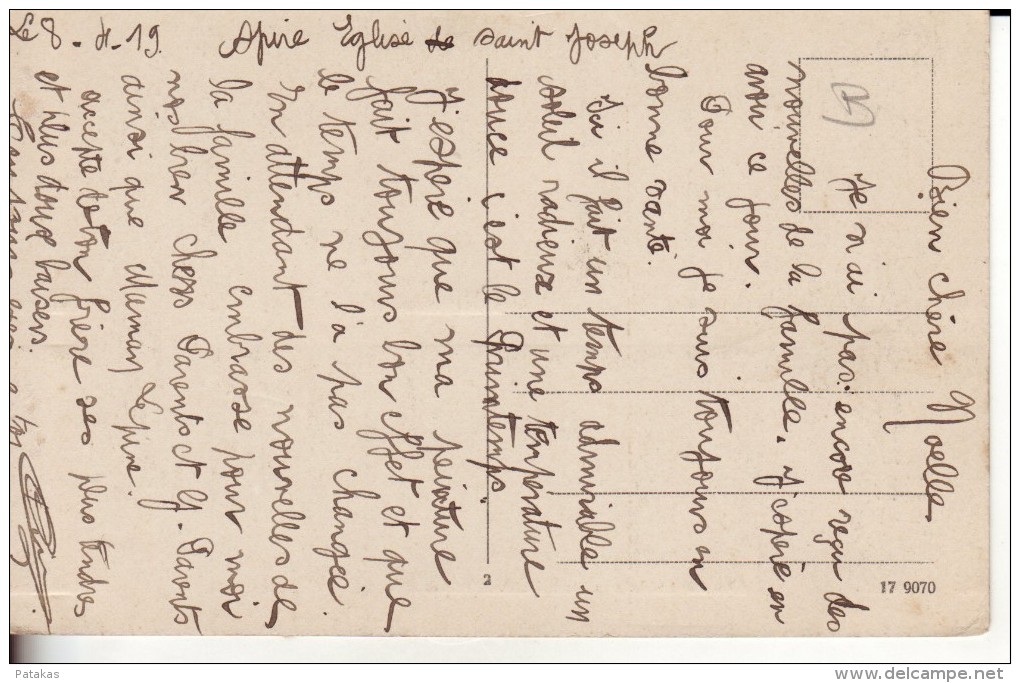 Le 8-4-19. Spire Eglise de Saint Joseph
Bien chère Noelle
Je n'ai pas encore reçu des
nouvelles de la famille. J'espère en
avoir ce jour.
Pour moi je suis toujours en
bonne santé.
Ici il fait un temps admirable un
soleil radieux et une température
douce c'est le Printemps
J'espère que ma peinture
fait toujours bon effet et que
le temps ne l'a pas changée.
En attendant des nouvelles de
la famille embrasse pour moi
nos bien chers Parents et G. Parents
ainsi que Maman Lepine.
accepte de ton frère ses plus tendres
et plus doux baisers.
2
17 9070
Patakas
www.delcampe.net